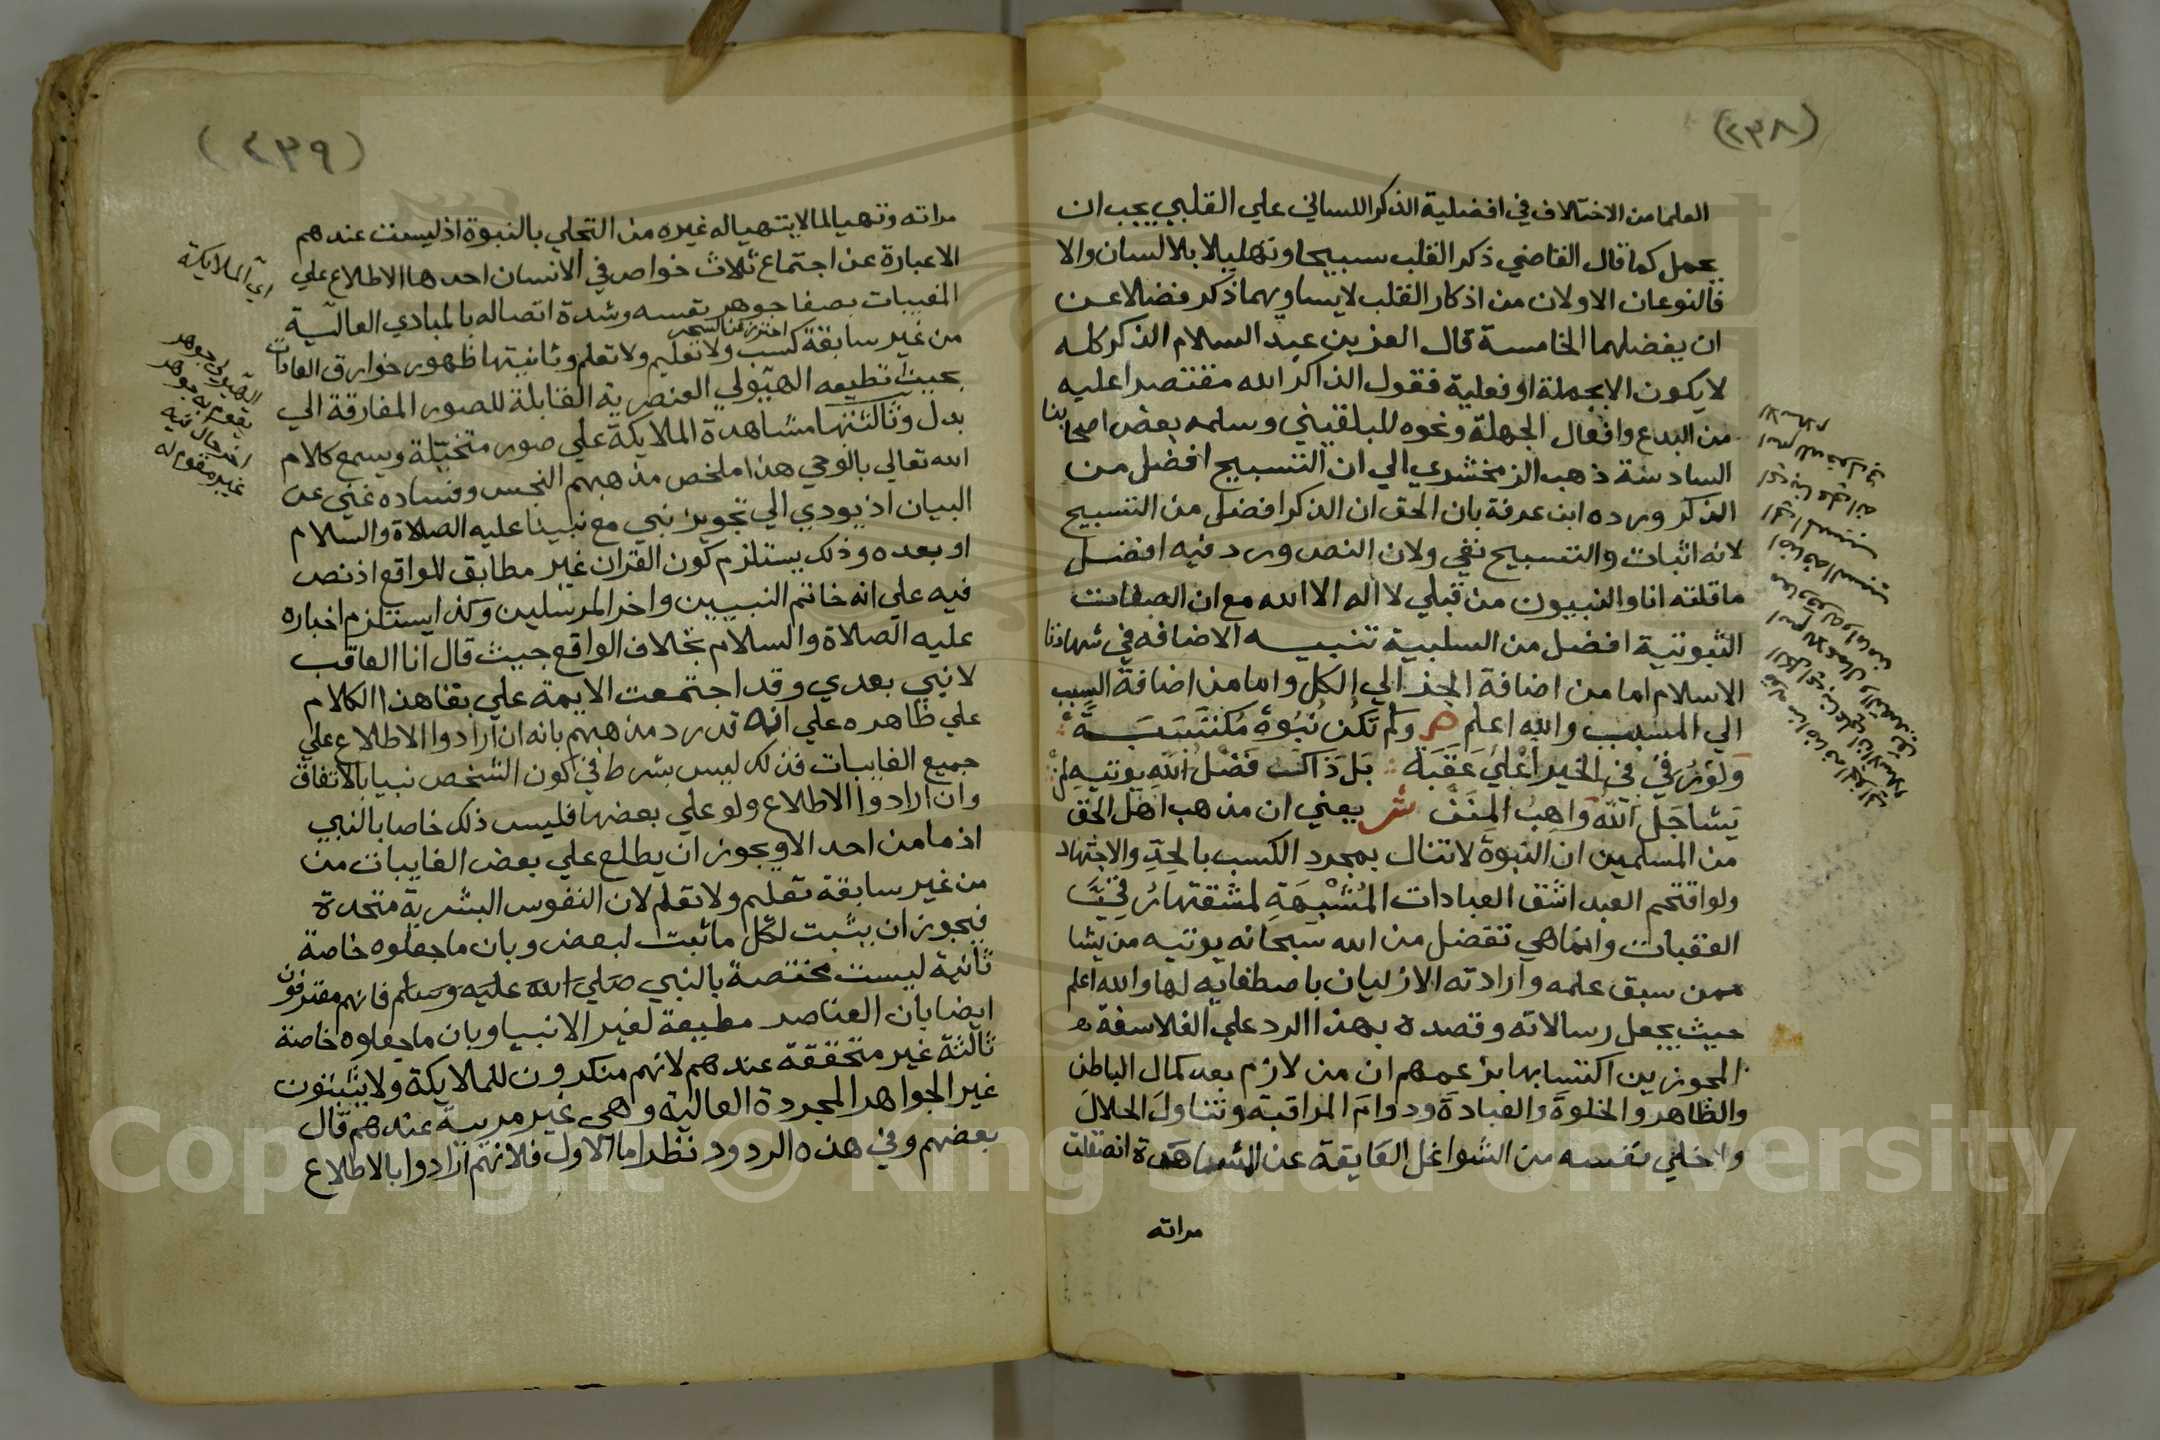 (٢٣٨)
العلما من الاختلاف في افضلية الذكر اللساني علي القلبي يجب ان
يحمل كما قال القاضي ذكر القلب سبيحا وتهليلا بلا لسان والا
فالنوعان الاولان من اذكار القلب لايساويهما ذكر فضلا عن
ان يفضلهما الخامسة قال العز بن عبد السلام الذكر كله
لا يكون الا بجملة او فعلية فقول الذاكر الله مقتصرا عليه
من البدع وافعال الجهلة ونحوه للبلقيني وسلمه بعض اصحابنا
السادسة ذهب الزمخشري الي ان التسبيح افضل من
الذكر ورده ابن عرفة بان الحق ان الذكر افضل من التسبيح
لانه اثبات والتسبيح نفي ولان النص ورد فيه افضل
ما قلته انا والنبيون من قبلي لا اله الا الله مع ان الصفات
الثبوتية افضل من السلبية تنبيه الاضافه في شهادتا
الاسلام اما من اضافة الجز الي الكل واما من اضافة السبب
الي المسبب والله اعلم ص وَلَم تَكُن نُبُوة مُكتَسَبَة
وَلَو رُقِي في الخير اَعلي عَقَبَة بَل ذَاكَ فَضلُ اللهِ يوتيهِ لمن
يَشا جَلَ اللهُ وَاهِبُ المِنَن ش يعني ان مذهب اهل الحق
من المسلمين ان النبوة لا تنال بمجرد الكسب بالجد والاجتهاد
ولو اقتحم العبد اشق العبادات المُشبِهَةِ لمشقتها رُقِيَّ
العقبات وانما هي تفضل من الله سبحانه يوتيه من يشا
ممن سبق علمه وارادته الازليان باصطفايه لها والله اعلم
حيث يجعل رسالاته وقصده بهذا الرد علي الفلاسفة
المجوزين اكتسابها بزعمهم ان من لازم بعد كمال الباطن
والظاهر والخلوةَ والعبادةَ ودوامَ المراقبة وتناولَ الحلالَ
واخلي نفسه من الشواغل العَايقة عن المشاهدة انصقلت
مراته
الاسلام
(٢٣٩)
مراته وتهيا لما لا يتهيا له غيره من التحلي بالنبوة اذ ليست عندهم
الا عبارة عن اجتماع ثلاث خواص في الانسان احدها الاطلاع علي
المغيبات بصفا جوهر نفسه وشدة اتصاله بالمبادي العالية
اي الملايكة
احترز عن السحر
من غير سابقة كسب ولا تعليم ولا تعلم وثانيتها ظهور خوارق العادات
بحيث تطيعه الهيولي العنصرية القابلة للصور المفارقة الي
الهيولي جوهر
يتقوم به جوهر
اخر حال فيه
غير متقوم له
بدل وثالثتها مشاهدة الملايكة علي صور متخيلة ويسمع كلام
الله تعالي بالوحي هذا ملخص مذهبهم النجس وفساده غني عن
البيان اذ يودي الي تجويز نبي مع نبينا عليه الصلاة والسلام
او بعده وذلك يستلزم كون القران غير مطابق للواقع اذ نص
فيه علي انه خاتم النبيين واخر المرسلين وكذا يستلزم اخباره
عليه الصلاة والسلام بخلاف الواقع حيث قال انا العاقب
لا نبي بعدي وقد اجتمعت الايمة علي بقا هذا الكلام
علي ظاهره علي انه قد رد مذهبهم بانه ان ارادوا الاطلاع علي
جميع الغايبات فذلك ليس بشرط في كون الشخص نبيا بالاتفاق
وان ارادوا الاطلاع ولو علي بعضها فليس ذلك خاصا بالنبي
اذ ما من احد الا ويجوز ان يطلع علي بعض الغايبات من
من غير سابقة تعليم ولا تعلم لان النفوس البشرية متحدة
فيجوز ان يثبت لكل ما ثبت لبعض وبان ما جعلوه خاصة
ثانية ليست مختصة بالنبي صلي الله عليه وسلم فانهم معترفون
ايضا بان العناصر مطيعة لغير الانبيا وبان ما جعلوه خاصة
ثالثة غير متحققة عندهم لانهم منكرون للملايكة ولا يثبتون
غير الجواهر المجردة العالية وهي غير مربية عندهم قال
بعضهم وفي هذه الردود نظر اما الاول فلانهم ارادوا بالاطلاع
Copyright © King Saud University